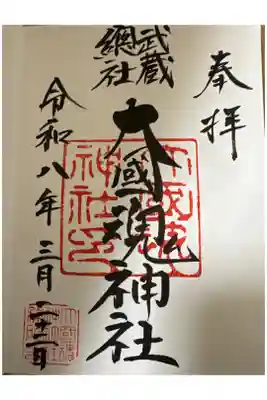 奉拝
武蔵
總社
大國魂神社
大國魂
神社印
令和八年三月二十一日